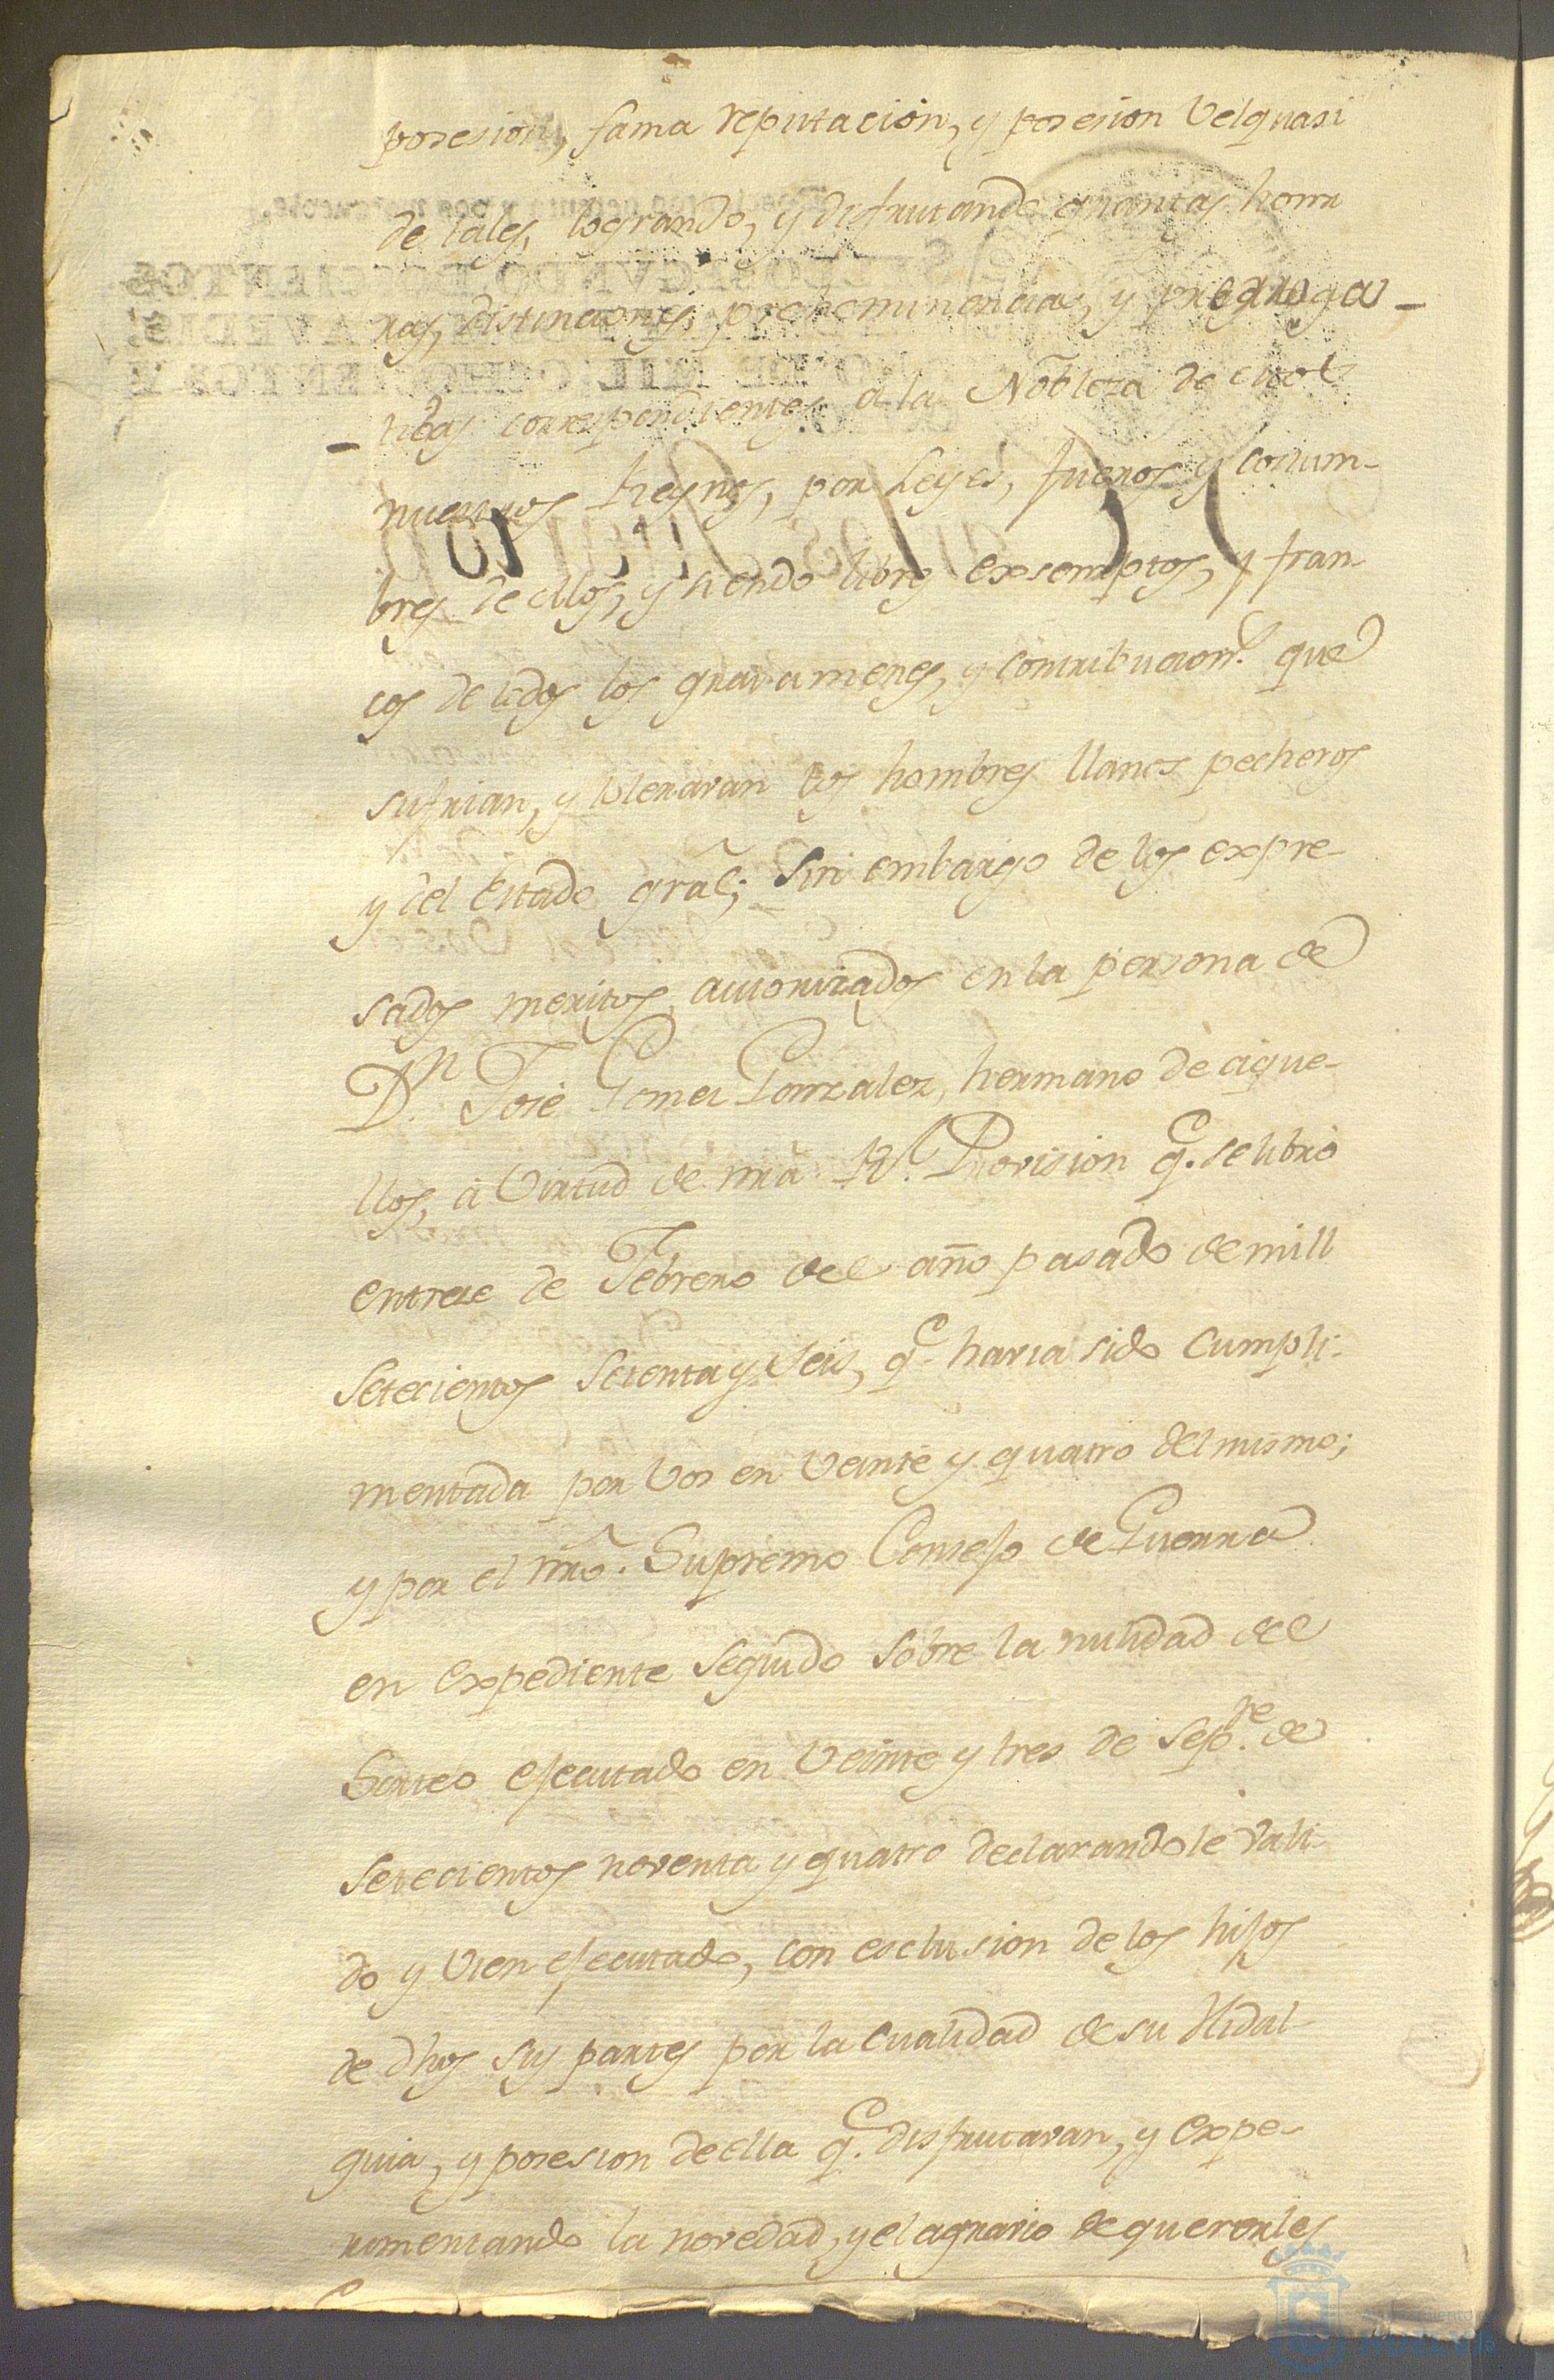 posesion, fama reputacion, y posesion velquasi
de tales, logrando, y disfrutando quantas honrr
ras, distinciones, preheminencias, y prerroga-
- tibas correspondientes a la Nobleza de
nuestros Reynos, por Leyes, fueros y costum-
bres de ellos, y siendo libres exsemptos, y fran-
cos de todos los gravamenes, y contribucion.s que
sufrian, y toleravan los hombres llanos pecheros
y del Estado gral; Sin embargo de los expre-
sados meritos autorizados en la persona de
Dn. José Gomez Gonzalez, hermano de aque-
llos, a virtud de nra Rl. Provision q.e se libró
entreze de Febrero del año pasado de mill
Setecientos setenta y Seis, q.e havia sido cumpli-
mentada por vos en veinte y quatro del mismo;
y por el nro. Supremo Consejo de Guerra
en Expediente seguido sobre la nulidad del
Sorteo ejecutado en veinte y tres de Sepre. de
Setecientos noventa y quatro declarandole vali-
do y vien ejecutado, con esclusion de los hijos
de dhos sus partes por la cualidad de su Hidal-
guia, y posesion de ella q.e disfrutavan, y Expe-
rimentando la novedad, y el agravio de quererles
AYUNTAMIENTO DE
HUELVA